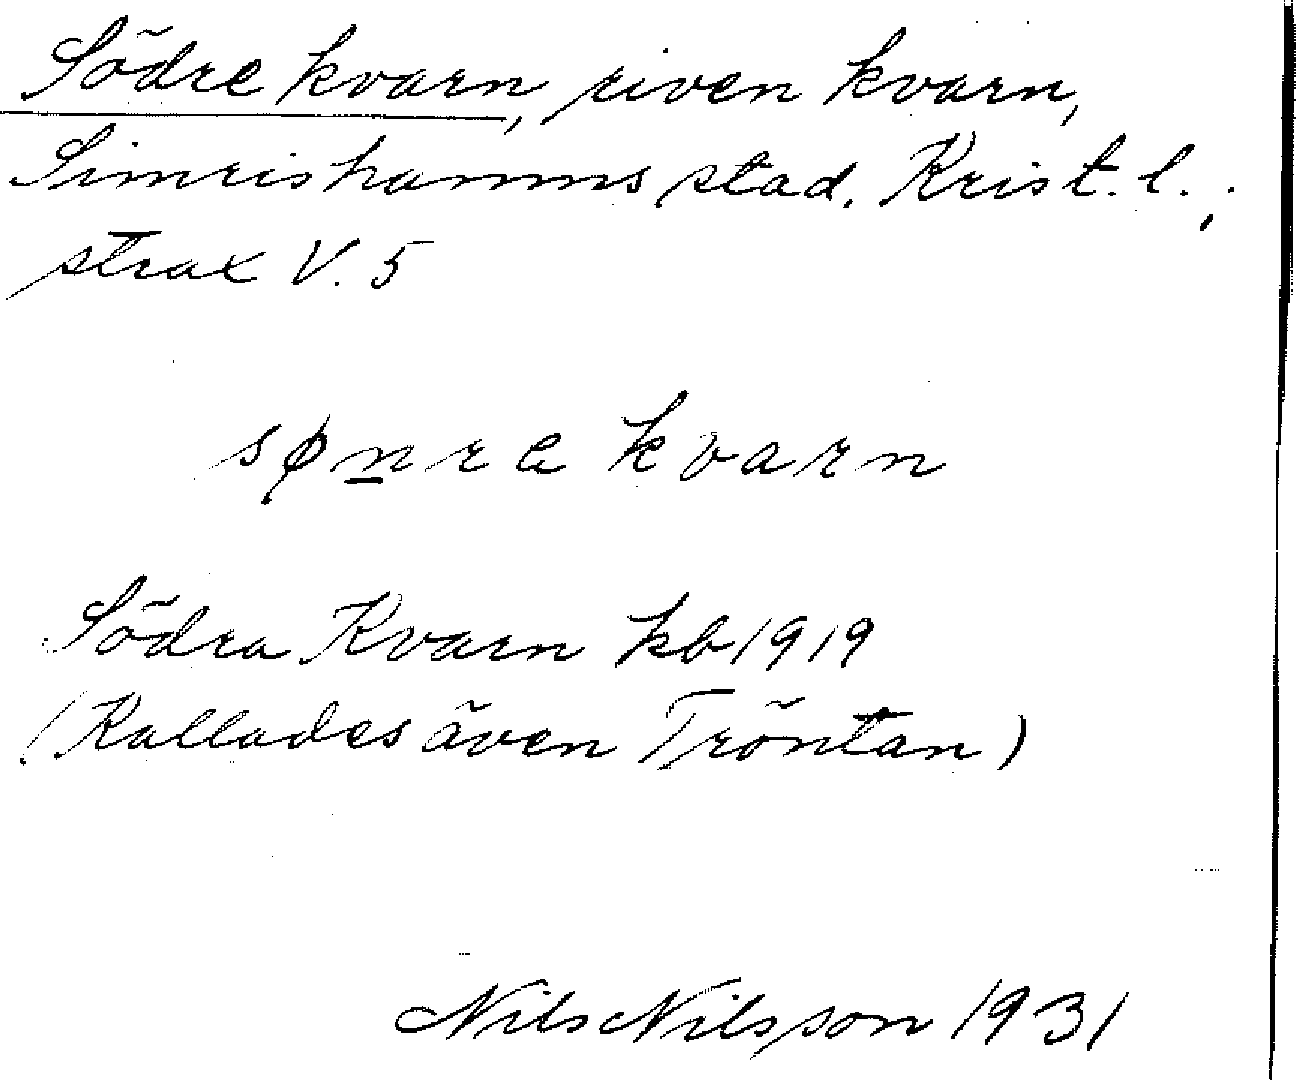 Södre kvarn, riven kvarn,
Simrishamns stad, Krist. l.,
strax V. 5
sønre kvarn
Södra Kvarn kb 1919
(Kallades även Tröntan)
Nils Nilsson 1931